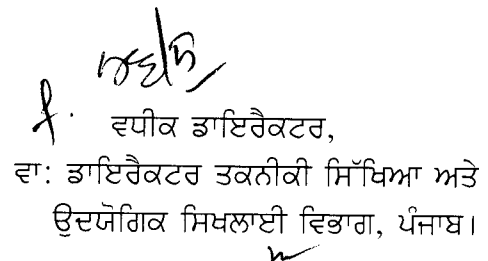 ਵਧੀਕ ਡਾਇਰੈਕਟਰ,
ਵਾ: ਡਾਇਰੈਕਟਰ ਤਕਨੀਕੀ ਸਿੱਖਿਆ ਅਤੇ
ਉਦਯੋਗਿਕ ਸਿਖਲਾਈ ਵਿਭਾਗ, ਪੰਜਾਬ।